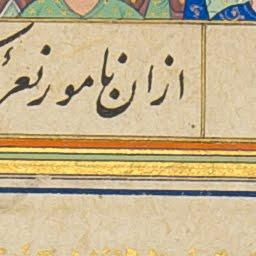 ازان نامور نعره